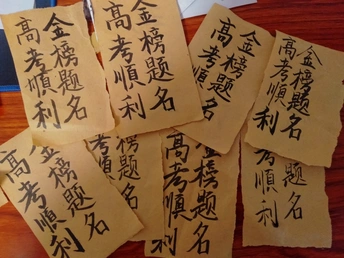 金榜题名
高考順利
金榜题名
高考順利
金榜题名
高考順利
金榜题名
高考順利
金榜题名
高考順利
题名
順利
金榜题名
高考順利
题名
順利